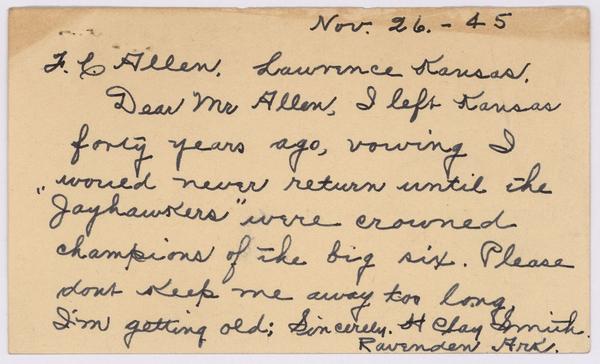 Nov. 26. - 45
F. C Allen. Lawrence Kansas.
Dear Mr Allen, I left Kansas
forty years ago, vowing I
would never return until the
"Jayhawkers" were crowned
champions of the big six. Please
dont keep me away too long,
I'm getting old; Sincerely. H Clay Smith.
Ravenden Ark.